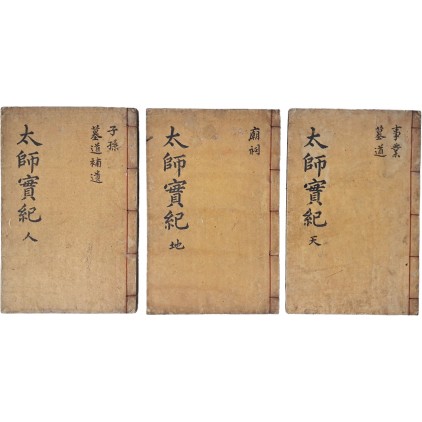 事業
墓道
太師實紀
天
廟祠
太師實紀
地
子孫
墓道補遺
太師實紀
人